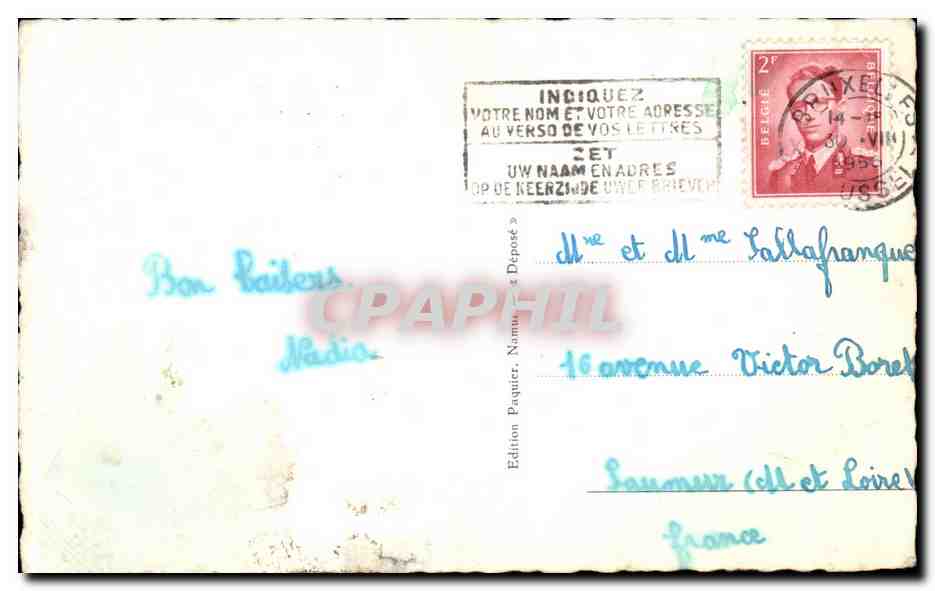 INDIQUEZ
VOTRE NOM ET VOTRE ADRESSE
AU VERSO DE VOS LETTRES
ZET
UW NAAM EN ADRES
OP DE KEERZIJDE UWER BRIEVEN
2F
BELGIE
BELGIQUE
BRUXELLES
14-
30 VIII
195
BRUSSEL
Bon baisers.
Nadia
CPAPHIL
Edition Paquier, Namur « Déposé »
Mre et Mme Lallafranque
16 avenue Victor Boret
Saumur (M et Loire)
france